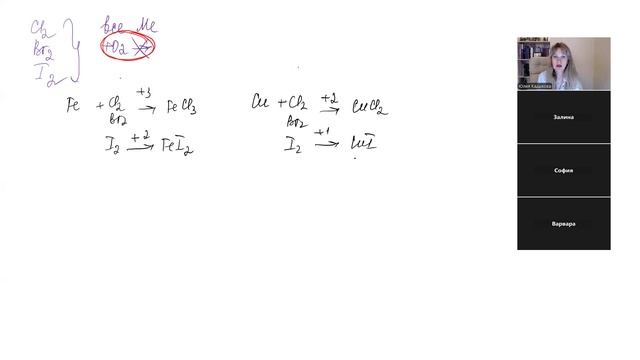 Cl2 все Me
Br2 +O2
I2
Fe +Cl2 +3 → FeCl3
Br2
I2 +2 → FeI2
Cu + Cl2 +2 → CuCl2
Br2
I2 +1 → CuI
Юлия Кадакова
Залина
София
Варвара